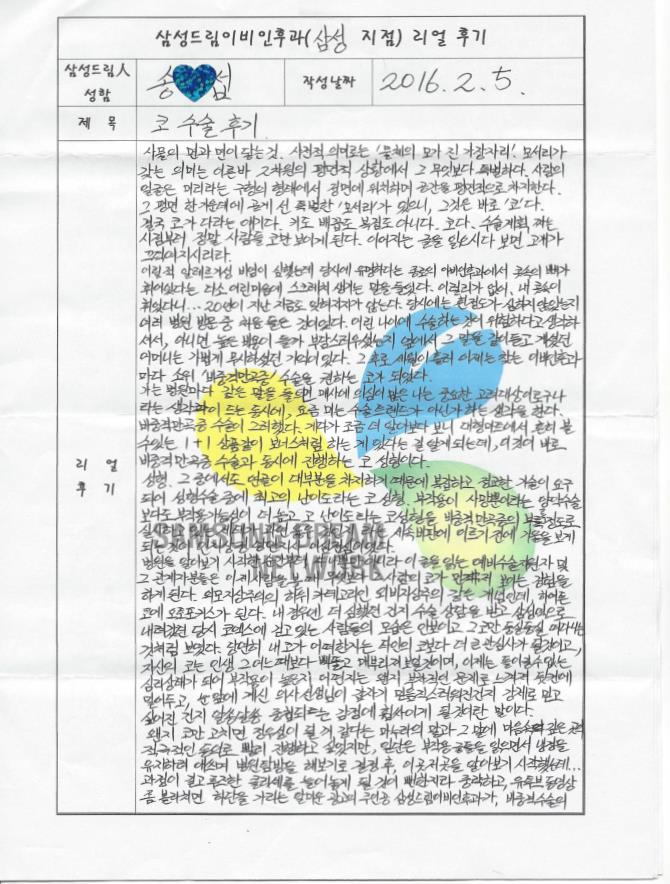 삼성드림이비인후과(삼성 지점) 리얼 후기
삼성드림人
성함
송 섭
작성날짜
2016. 2. 5.
제 목
코 수술 후기
리 얼
후 기
사물의 면과 면이 닿는 것. 사전적 의미로는 '물체의 모가 진 가장자리'. 모서리가
갖는 의미는 이른바 2차원의 평면적 상황에서 그 무엇보다 특별하다. 사람의
얼굴은 머리라는 구형의 형태에서 정면에 위치하며 공간을 평면적으로 차지한다.
그 평면 한가운데에 곧게 선 특별한 '모서리'가 있으니, 그것은 바로 '코'다.
결국 코가 다라는 얘기다. 귀도 배꼽도 복점도 아니다. 코다. 수술계획 짜는
시점부터 정말 사람들 코만 보이게 된다. 이어지는 글을 읽으시다 보면 고개가
끄덕여지시리라.
어릴적 알레르기성 비염이 심했는데 당시에 유명하다는 종로의 이비인후과에서 콧속의 뼈가
휘어있다는 다소 어린마음에 스크래치 생기는 말을 들었다. 이럴리가 없어, 내 콧속이
휘었다니... 20년이 지난 지금도 잊혀지지가 않는다. 당시에는 환경도가 심하지 않았는지
여러 병원 방문 중 처음 들은 것이었다. 어린 나이에 수술하는 것이 위험하다고 생각하
셔서, 아니면 높은 비용이 들까 부담스러우셨는지 옆에서 그 말을 같이 듣고 계셨던
어머니는 가볍게 무시하셨던 기억이 있다. 그 후로 세월이 흘러 이제는 찾는 이비인후과
마다 소위 '비중격만곡증' 수술을 권하는 코가 되었다.
가는 병원마다 같은 말을 들으면 매사에 의심이 많은 나는 중요한 고려대상이로구나
라는 생각과 이 드는 동시에, 요즘 미는 수술트렌드가 아닌가 하는 생각을 한다.
비중격만곡증 수술이 그러했다. 게다가 조금 더 알아보다 보니 대형마트에서 흔히 볼
수있는 1+1 상품같이 보너스처럼 하는 게 있다는 걸 알게되는데, 이것이 바로
비중격만곡증 수술과 동시에 진행하는 코 성형이다.
성형. 그 중에서도 얼굴의 대부분을 차지하기 때문에 복잡하고 정교한 기술이 요구
되어 성형수술 중에 최고의 난이도라는 코 성형. 부작용이 사망뿐이라는 양악수술
보다도 부작용가능성이 더 높고 고난이도라는 코성형을 비중격만곡증의 부록정도로
SAMSUNG DREAM
NETWORK
병원을 알아보기 시작한
그 관계가분들은 이제 사람을
하게 된다. 외모지상주의의 하위 카테고리인 외비지상주의 같은 개념인데, 하여튼
코에 오로포커스가 된다. 내 경우엔 더 심했던 건지 수술 상담을 받고 삼성역으로
내려갔던 당시 코엑스에 걷고 있는 사람들의 모습은 안보이고 그 코만 둥실둥실 떠다니는
것처럼 보였다. 당연히 내 코가 어떠한지는 타인의 코보다 더 큰 관심사가 될것이고,
자신의 코는 인생 그 어느때보다 삐뚤고 매부리져보일것이며, 이제는 돌이킬수없는
심리상태가 되어 부작용이 높든지 어떤지는 왠지 부차적인 문제로 느껴져 뒷전에
밀어두고, 눈앞에 계신 의사선생님이 갑자기 믿음직스러워진건지 강제로 믿고
싶어진 건지 알쏭달쏭 중첩되는 감정에 휩싸이게 될것이란 말이다.
왠지 코만 고치면 정우성이 될 거 같다는 마누라의 말과 그 말에 마음속의 깊은 곳의
적극적인 동의로 빨리 진행하고 싶었지만, 일단은 부작용글들을 읽으면서 냉정을
유지하려 애쓰며 병원탐방을 해보기로 결정 후, 이곳저곳을 알아보기 시작했는데...
과정이 길고 투즈한 클리셰를 늘어놓게 될 것이 뻔한지라 중략하고, 유튜브동영상
좀 볼라치면 하단을 가리는 얄미운 광고의 주인공 삼성드림이비인후과가, 비중격수술의